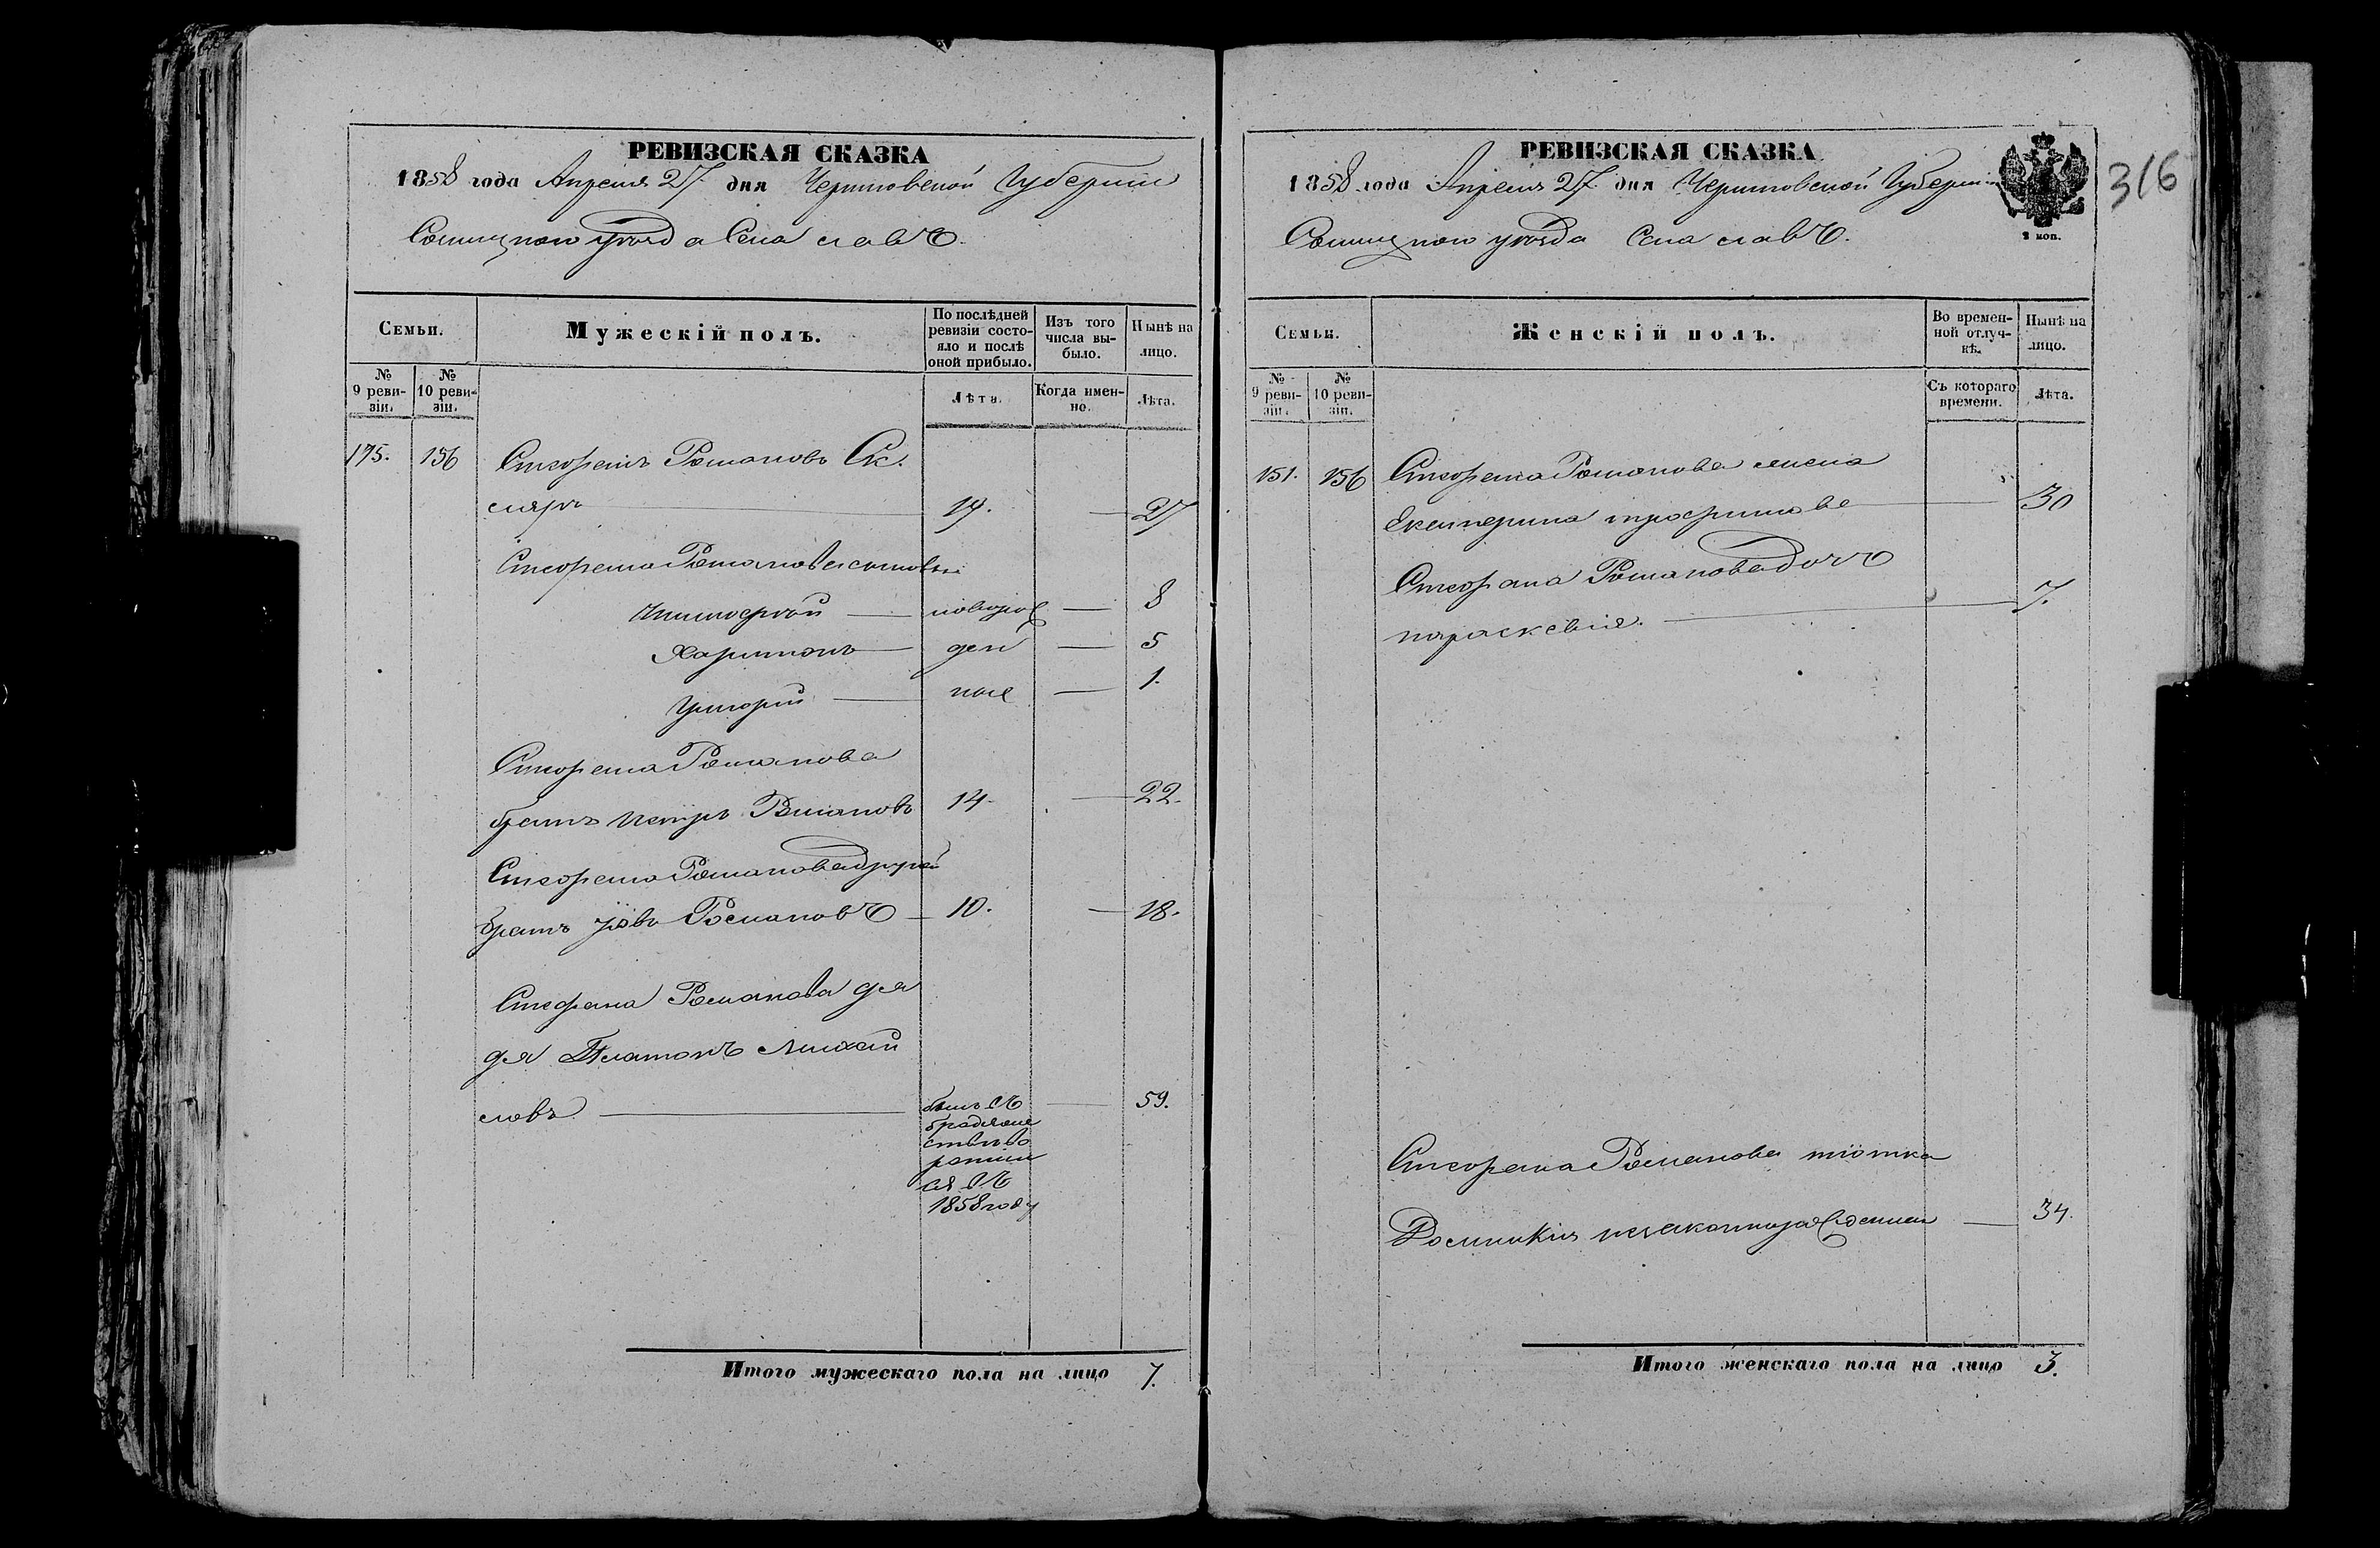 РЕВИЗСКАЯ СКАЗКА
1858 года Апреля 27 дня Черниговской Губернии
Сосницкого уезда Села слабЪ.
Семьи.
Мужескій полъ.
По послѣдней ревизіи состояло и послѣ оной прибыло.
Изъ того числа выбыло.
Нынѣ на лицо.
№ 9 ревизіи.
№ 10 ревизіи.
Лѣта.
Когда именно.
Лѣта.
175. 156 Стефанъ Романовъ Ск.
сляръ 19. 27
Стефана Романова сыновья
Тимофей новорож 8
Харитонъ ден 5
Григорій ные 1.
Стефана Романова
братъ Петръ Романовъ 14. 22.
Стефана Романова другой
братъ Іовъ РомановЪ 10. 18.
Стефана Романова дя
дя ПлатонЪ Михай
ловъ 59.
былЪ вЪ
бродяже
ствѣ во
ротил
ся вЪ
1858 году
Итого мужескаго пола на лицо 7.
РЕВИЗСКАЯ СКАЗКА
1858 года Апреля 27 дня Черниговской Губернии
Сосницкого уезда Села слабЪ.
2 коп.
316
Семьи.
Женскій полъ.
Во временной отлучкѣ.
Нынѣ на лицо.
№ 9 ревизіи.
№ 10 ревизіи.
Съ котораго времени.
Лѣта.
151. 156 Стефана Романова жена
Екатерина трофимова 30
Стефана Романова дочЪ
параскевія. 7.
Стефана Романова тіотка
Домникія незаконнорожденная 34.
Итого женскаго пола на лицо 3.